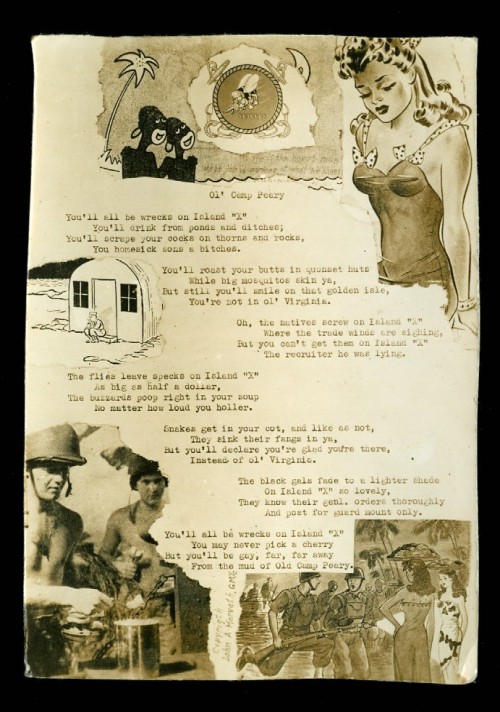 SEABEES
Ol' Camp Peary
You'll all be wrecks on Island "X"
You'll drink from ponds and ditches;
You'll scrape your cocks on thorns and rocks,
You homesick sons a bitches.
You'll roast your butts in quonset huts
While big mosquitos skin ya,
But still you'll smile on that golden isle,
You're not in ol' Virginia.
Oh, the natives screw on Island "X"
Where the trade winds are sighing,
But you can't get them on Island "X"
The recruiter he was lying.
The flies leave specks on Island "X"
As big as half a dollar,
The buzzards poop right in your soup
No matter how loud you holler.
Snakes get in your cot, and like as not,
They sink their fangs in ya,
But you'll declare you're glad you're there,
Instead of ol' Virginia.
The black gals fade to a lighter shade
On Island "X" so lovely,
They know their genl. orders thoroughly
And post for guard mount only.
You'll all be wrecks on Island "X"
You may never pick a cherry
But you'll be gay, far, far away
From the mud of Old Camp Peary.
Copyright
John A.